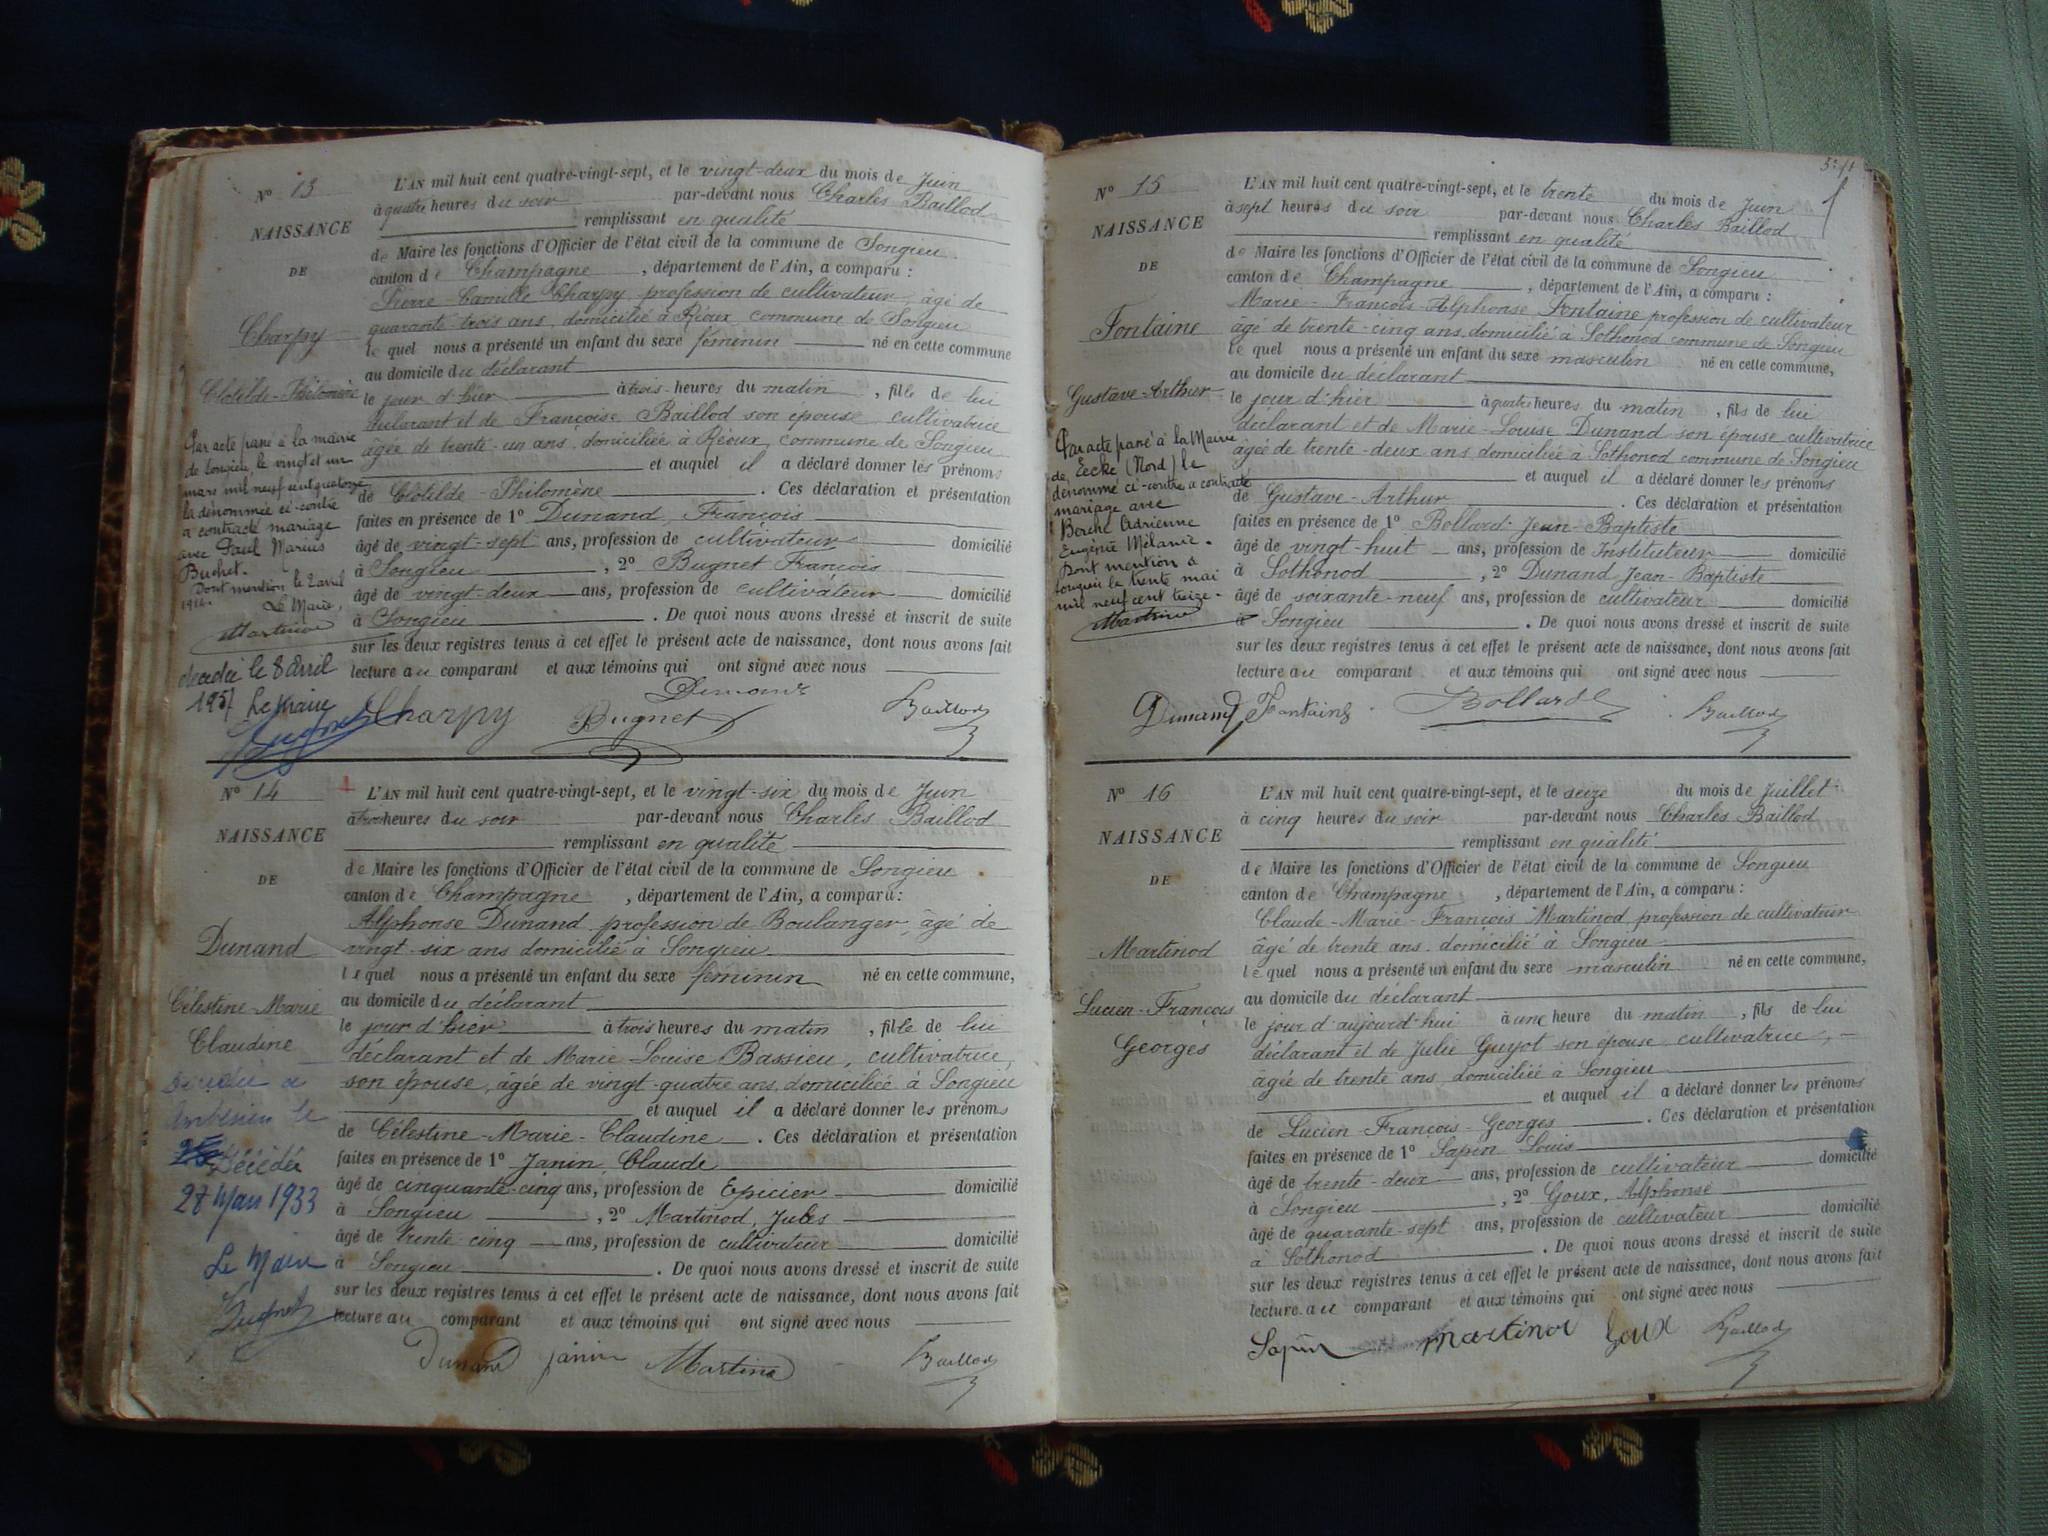 N° 13
NAISSANCE
DE
Charpy
Clotilde-Philomène
Par acte passé à la mairie
de Songieu, le vingt et un
mars mil neuf cent quatorze
la dénommée ci-contre
a contracté mariage
avec Paul Marius
Buchet.
Dont mention le 2 avril
1914.
Le Maire,
Martinod
décédée le 8 Avril
1957 Le Maire
L'AN mil huit cent quatre-vingt-sept, et le vingt-deux du mois de Juin
à quatre heures du soir par-devant nous Charles Baillod
remplissant en qualité
de Maire les fonctions d'Officier de l'état civil de la commune de Songieu
canton de Champagne, département de l'Ain, a comparu :
Pierre Camille Charpy, profession de cultivateur, âgé de
quarante-trois ans, domicilié à Réoux, commune de Songieu
lequel nous a présenté un enfant du sexe féminin né en cette commune
au domicile du déclarant
le jour d'hier à trois heures du matin, fille de lui
déclarant et de Françoise Baillod son épouse cultivatrice
âgée de trente-un ans, domiciliée à Réoux, commune de Songieu
et auquel il a déclaré donner les prénoms
de Clotilde-Philomène. Ces déclaration et présentation
faites en présence de 1° Dunand, François
âgé de vingt-sept ans, profession de cultivateur domicilié
à Songieu, 2° Bugnet François
âgé de vingt-deux ans, profession de cultivateur domicilié
à Songieu. De quoi nous avons dressé et inscrit de suite
sur les deux registres tenus à cet effet le présent acte de naissance, dont nous avons fait
lecture au comparant et aux témoins qui ont signé avec nous
Dunand
Charpy Bugnet Baillod
N° 14
NAISSANCE
DE
Dunand
Célestine-Marie
Claudine
Décédée à
le
Décédée
28 Mars 1933
Le Maire
Bugnet
L'AN mil huit cent quatre-vingt-sept, et le vingt-six du mois de Juin
à trois heures du soir par-devant nous Charles Baillod
remplissant en qualité
de Maire les fonctions d'Officier de l'état civil de la commune de Songieu
canton de Champagne, département de l'Ain, a comparu :
Alphonse Dunand profession de Boulanger, âgé de
vingt-six ans domicilié à Songieu
lequel nous a présenté un enfant du sexe féminin né en cette commune,
au domicile du déclarant
le jour d'hier à trois heures du matin, fille de lui
déclarant et de Marie Louise Bassieu, cultivatrice,
son épouse, âgée de vingt-quatre ans, domiciliée à Songieu
et auquel il a déclaré donner les prénoms
de Célestine-Marie-Claudine. Ces déclaration et présentation
faites en présence de 1° Janin, Claude
âgé de cinquante-cinq ans, profession de Epicier domicilié
à Songieu, 2° Martinod, Jules
âgé de trente cinq ans, profession de cultivateur domicilié
à Songieu. De quoi nous avons dressé et inscrit de suite
sur les deux registres tenus à cet effet le présent acte de naissance, dont nous avons fait
lecture au comparant et aux témoins qui ont signé avec nous
Dunand janin Martinod Baillod
N° 15
NAISSANCE
DE
Fontaine
Gustave-Arthur
Par acte passé à la Mairie
de Eecke (Nord) le
dénommé ci-contre a contracté
mariage avec
Adrienne
Eugénie Mélanie.
Dont mention à
Songieu le trente mai
mil neuf cent treize.
Martinod
L'AN mil huit cent quatre-vingt-sept, et le trente du mois de Juin
à sept heures du soir par-devant nous Charles Baillod
remplissant en qualité
de Maire les fonctions d'Officier de l'état civil de la commune de Songieu
canton de Champagne, département de l'Ain, a comparu :
Marie-François-Alphonse Fontaine profession de cultivateur
âgé de trente-cinq ans, domicilié à Sothonod commune de Songieu
lequel nous a présenté un enfant du sexe masculin né en cette commune,
au domicile du déclarant
le jour d'hier à quatre heures du matin, fils de lui
déclarant et de Marie-Louise Dunand son épouse cultivatrice
âgée de trente-deux ans, domiciliée à Sothonod commune de Songieu
et auquel il a déclaré donner les prénoms
de Gustave-Arthur. Ces déclaration et présentation
faites en présence de 1° Bollard Jean-Baptiste
âgé de vingt-huit ans, profession de Instituteur domicilié
à Sothonod, 2° Dunand, Jean-Baptiste
âgé de soixante-neuf ans, profession de cultivateur domicilié
à Songieu. De quoi nous avons dressé et inscrit de suite
sur les deux registres tenus à cet effet le présent acte de naissance, dont nous avons fait
lecture au comparant et aux témoins qui ont signé avec nous
Dunand Fontaine Bollard Baillod
N° 16
NAISSANCE
DE
Martinod
Lucien-François
Georges
L'AN mil huit cent quatre-vingt-sept, et le seize du mois de Juillet
à cinq heures du soir par-devant nous Charles Baillod
remplissant en qualité
de Maire les fonctions d'Officier de l'état civil de la commune de Songieu
canton de Champagne, département de l'Ain, a comparu :
Claude-Marie-François Martinod, profession de cultivateur
âgé de trente ans, domicilié à Songieu
lequel nous a présenté un enfant du sexe masculin né en cette commune,
au domicile du déclarant
le jour d'aujourd'hui à une heure du matin, fils de lui
déclarant et de Julie Guyot son épouse cultivatrice,
âgée de trente ans, domiciliée à Songieu
et auquel il a déclaré donner les prénoms
de Lucien-François-Georges. Ces déclaration et présentation
faites en présence de 1° Sapin Louis
âgé de trente-deux ans, profession de cultivateur domicilié
à Songieu, 2° Goux, Alphonse
âgé de quarante-sept ans, profession de cultivateur domicilié
à Sothonod. De quoi nous avons dressé et inscrit de suite
sur les deux registres tenus à cet effet le présent acte de naissance, dont nous avons fait
lecture au comparant et aux témoins qui ont signé avec nous
Sapin Martinod Goux Baillod